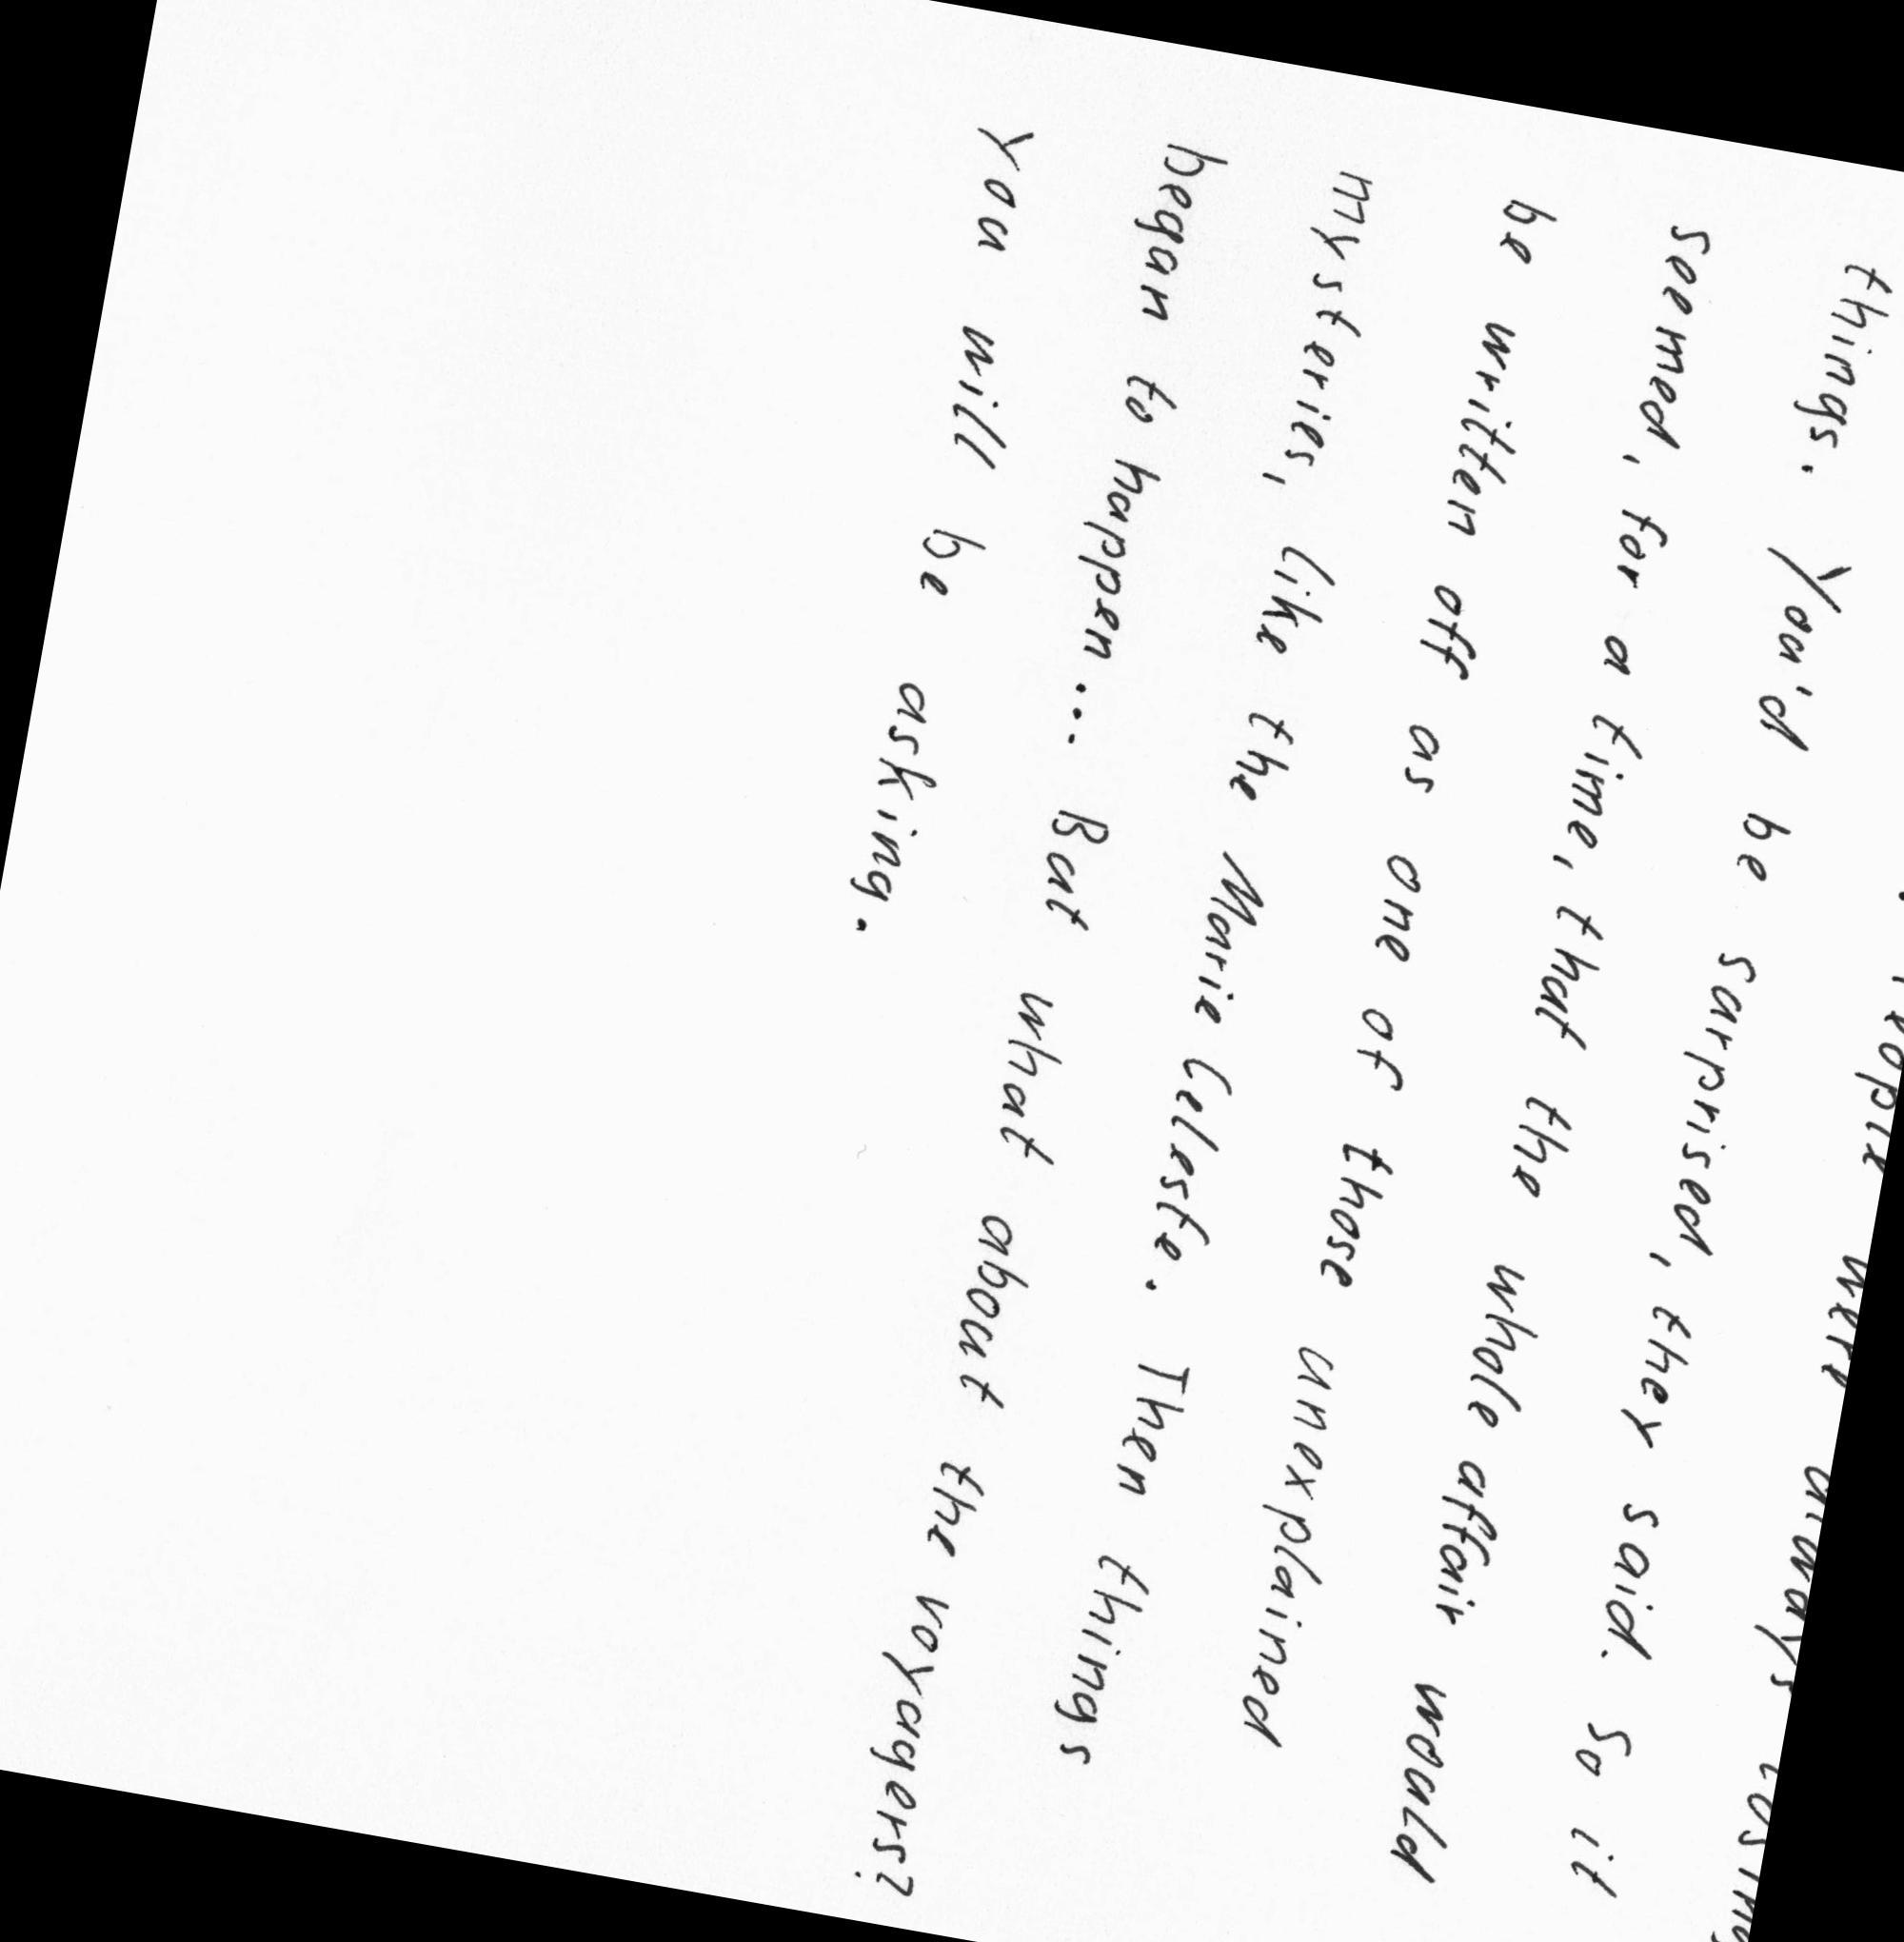 People were always losing
things. You'd be surprised, they said. So it
seemed, for a time, that the whole affair would
be written off as one of those unexplained
mysteries, like the Marie Celeste. Then things
began to happen... But what about the voyagers?
You will be asking.